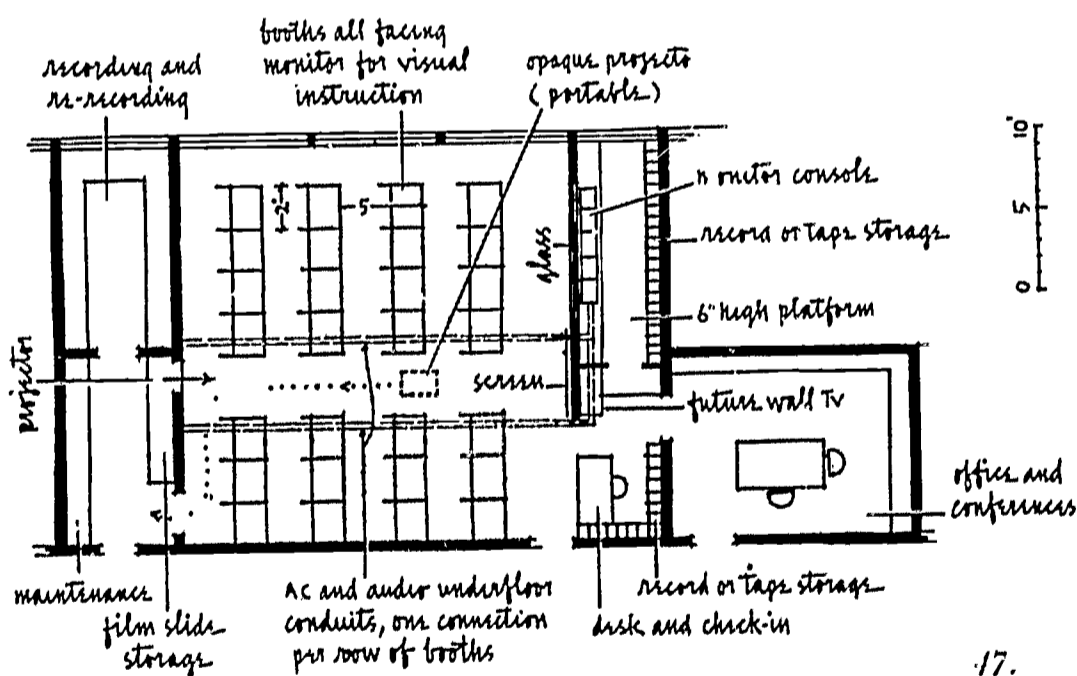 recording and
re-recording
booths all facing
monitor for visual
instruction
opaque projecto
(portable)
10'
5
0
2'
5
glass
monitor console
record or tape storage
6" high platform
projector
screen
future wall TV
office and
conferences
maintenance
film slide
storage
AC and audio underfloor
conduits, one connection
per row of booths
record or tape storage
desk and check-in
17.